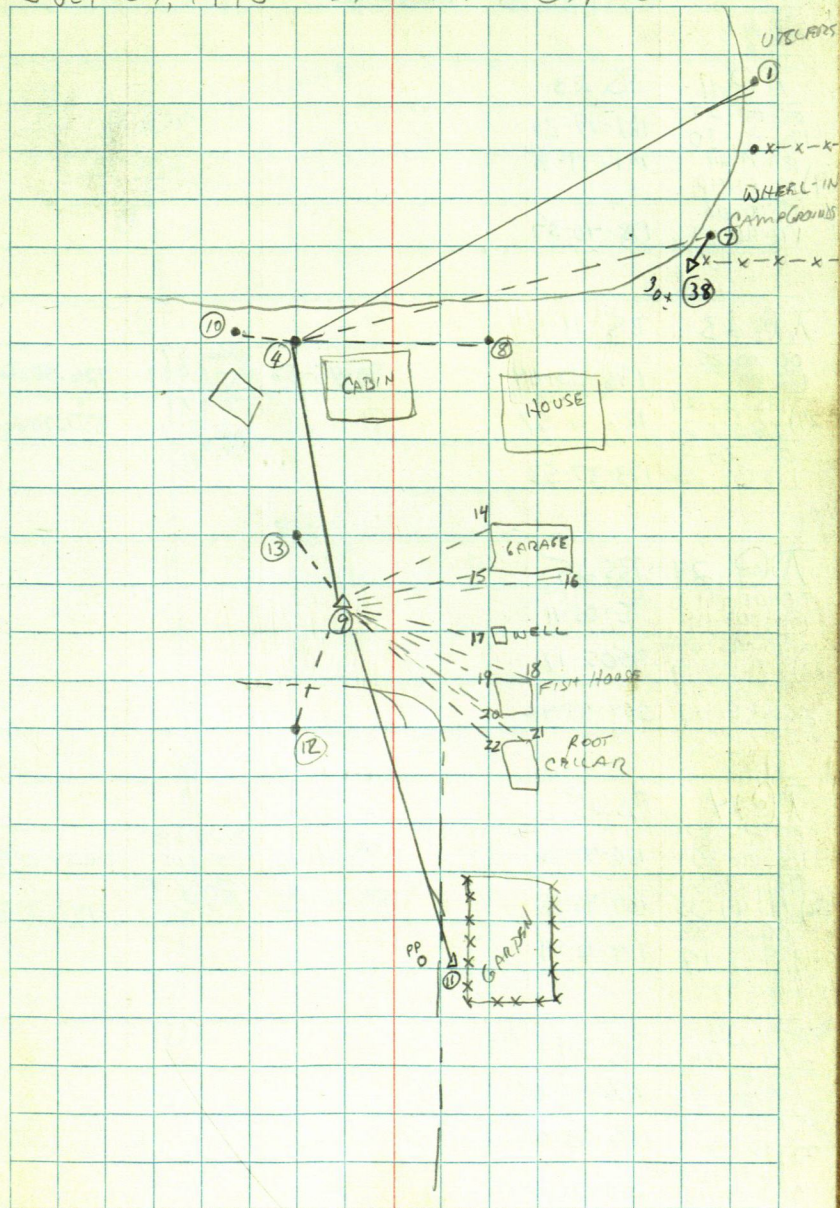 UTECLERS
1
WHEEL-IN
CAMPGROUNDS
7
38
10
4
8
CABIN
HOUSE
14
GARAGE
13
15
16
9
17
WELL
18
19
FISH HOUSE
20
21
22
ROOT
CELLAR
12
GARDEN
PP
11